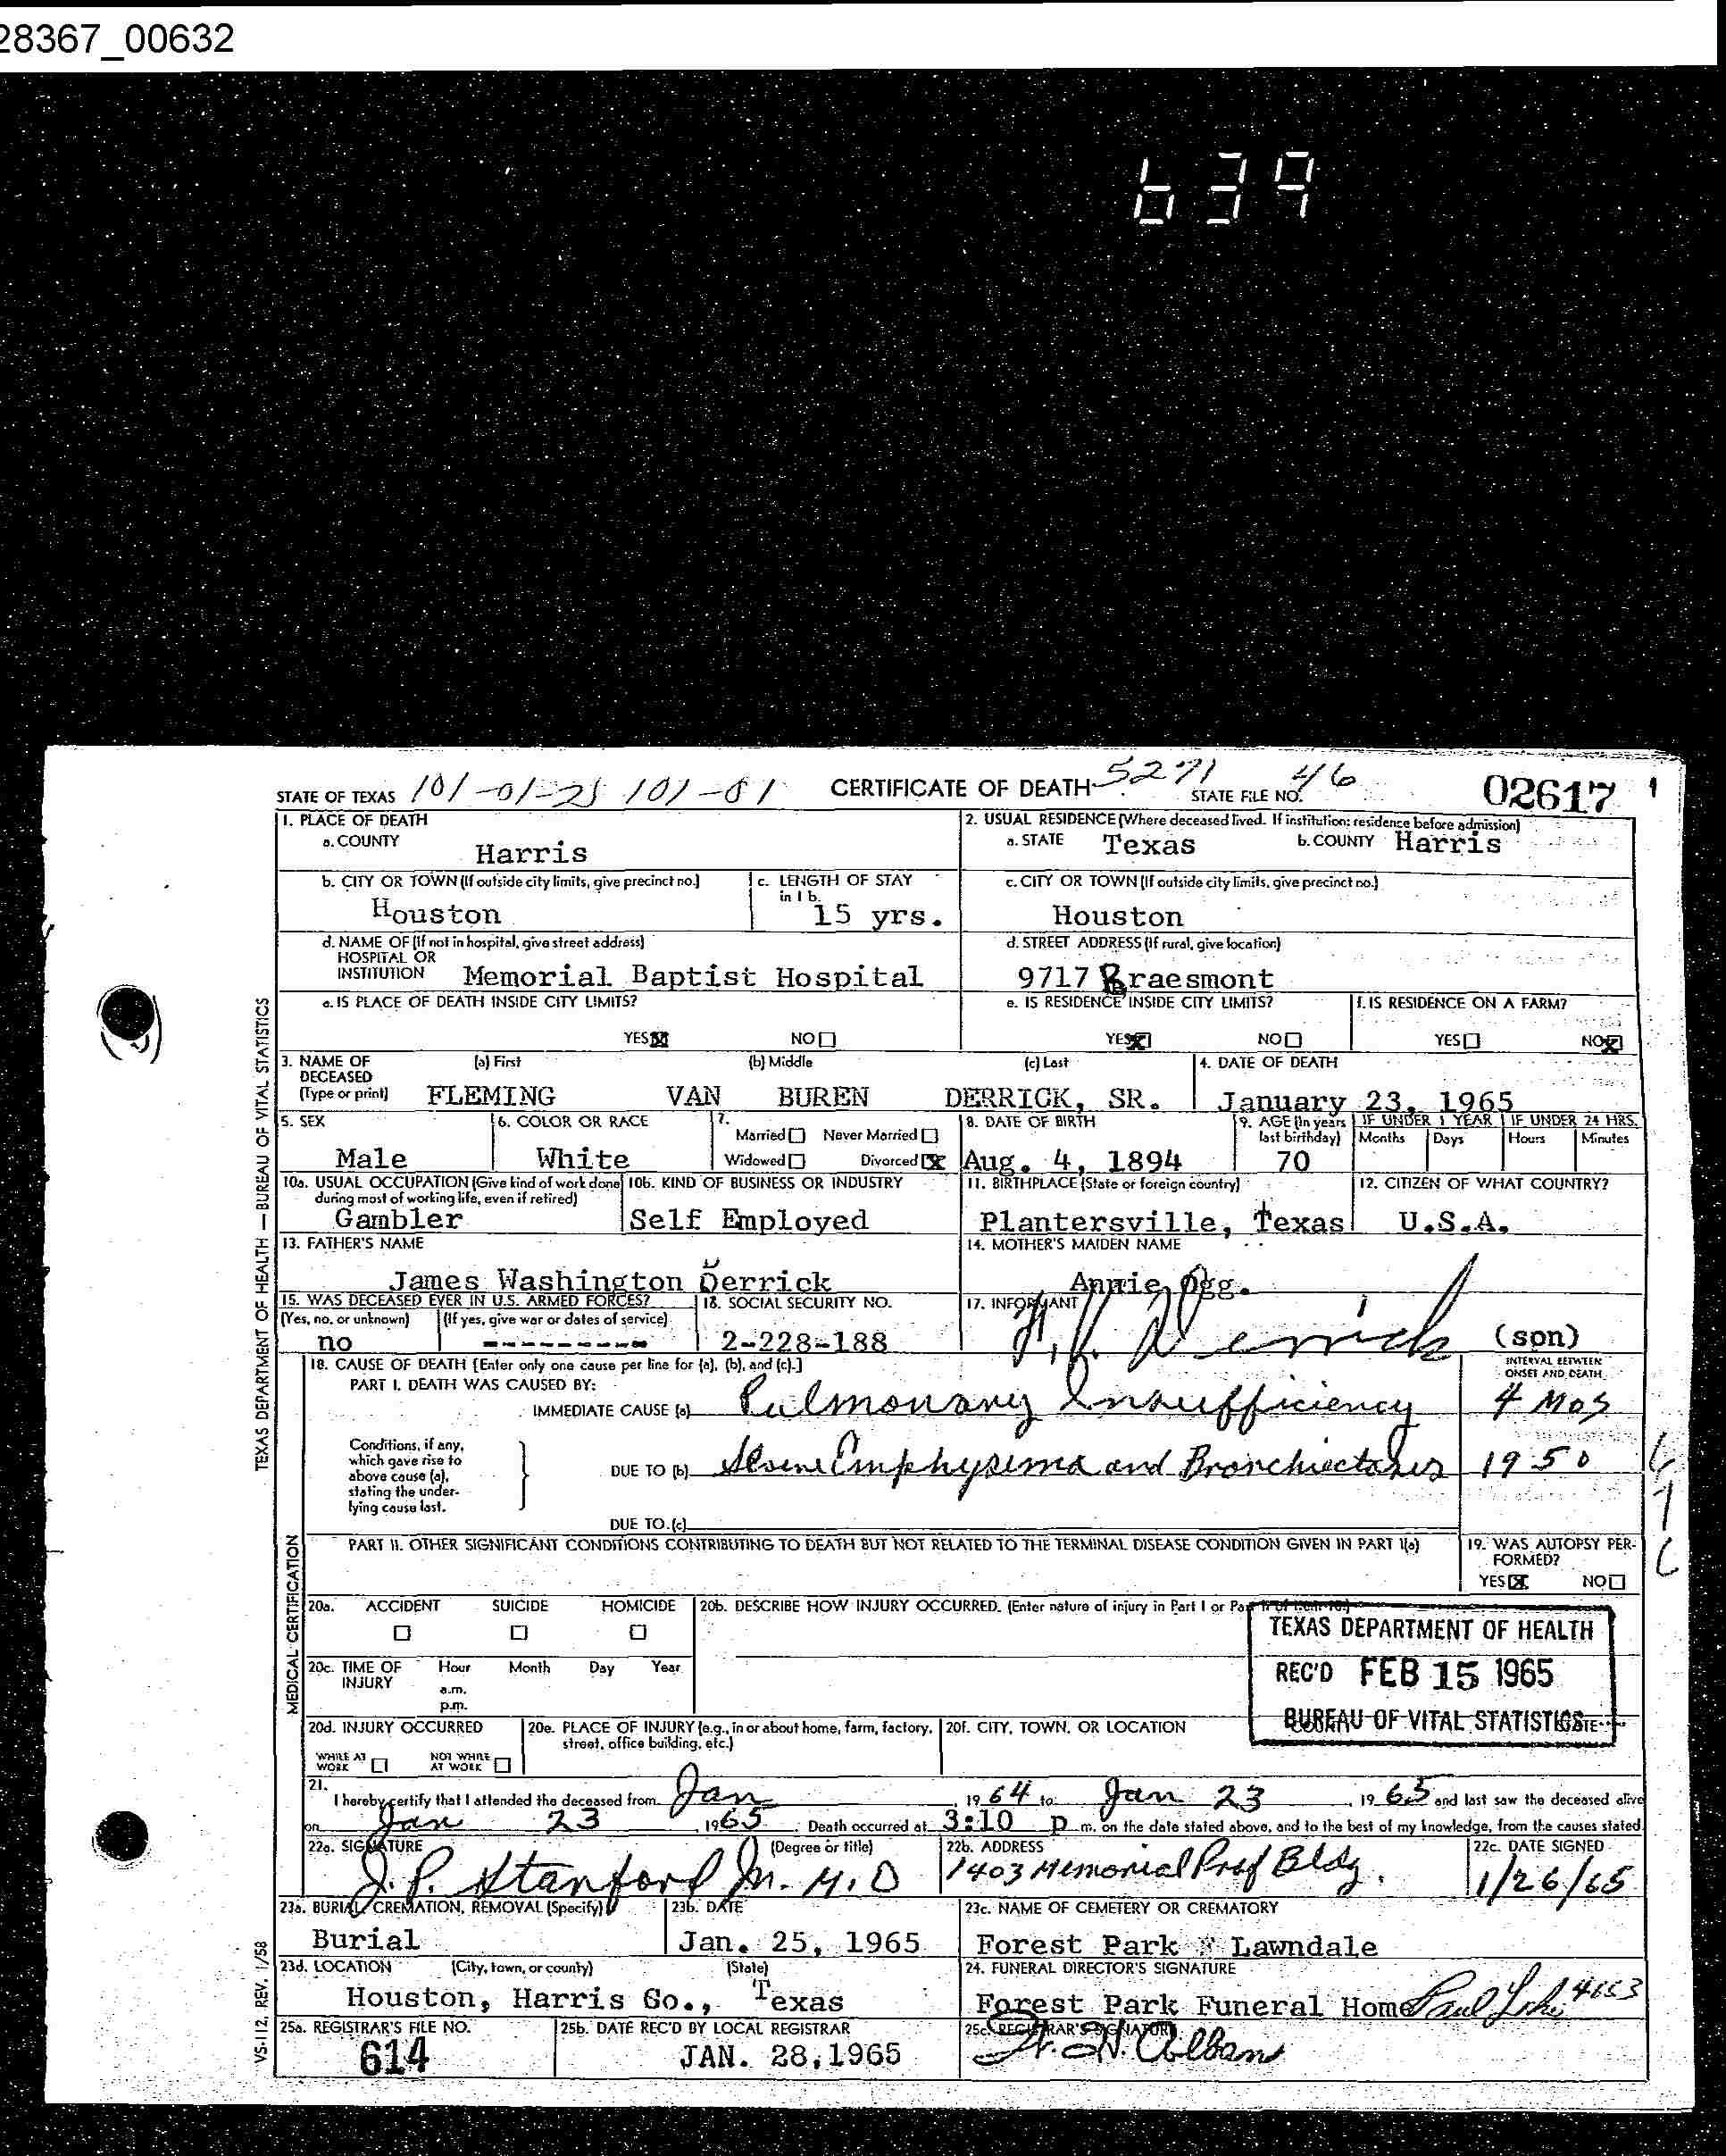 28367_00632
639
STATE OF TEXAS 101-01-25 101-01 CERTIFICATE OF DEATH 5271 46 STATE FILE NO. 02617 1
1. PLACE OF DEATH
a. COUNTY Harris
2. USUAL RESIDENCE (Where deceased lived. If institution: residence before admission)
a. STATE Texas b. COUNTY Harris
b. CITY OR TOWN (If outside city limits, give precinct no.) Houston
c. LENGTH OF STAY in 1 b. 15 yrs.
c. CITY OR TOWN (If outside city limits, give precinct no.) Houston
d. NAME OF (If not in hospital, give street address) HOSPITAL OR INSTITUTION Memorial Baptist Hospital
d. STREET ADDRESS (If rural, give location) 9717 Braesmont
e. IS PLACE OF DEATH INSIDE CITY LIMITS? YES X NO
e. IS RESIDENCE INSIDE CITY LIMITS? YES X NO
f. IS RESIDENCE ON A FARM? YES NO X
3. NAME OF DECEASED (Type or print) (a) First (b) Middle (c) Last
FLEMING VAN BUREN DERRICK, SR.
4. DATE OF DEATH January 23, 1965
5. SEX Male
6. COLOR OR RACE White
7. Married Never Married Widowed Divorced X
8. DATE OF BIRTH Aug. 4, 1894
9. AGE (In years last birthday) 70
IF UNDER 1 YEAR Months Days
IF UNDER 24 HRS. Hours Minutes
10a. USUAL OCCUPATION (Give kind of work done during most of working life, even if retired) Gambler
10b. KIND OF BUSINESS OR INDUSTRY Self Employed
11. BIRTHPLACE (State or foreign country) Plantersville, Texas
12. CITIZEN OF WHAT COUNTRY? U.S.A.
13. FATHER'S NAME James Washington Derrick
14. MOTHER'S MAIDEN NAME Annie Ogg.
15. WAS DECEASED EVER IN U.S. ARMED FORCES? (Yes, no, or unknown) no (If yes, give war or dates of service) ---------
16. SOCIAL SECURITY NO. 2-228-188
17. INFORMANT Derrick (son)
18. CAUSE OF DEATH [Enter only one cause per line for (a), (b), and (c).]
INTERVAL BETWEEN ONSET AND DEATH
PART I. DEATH WAS CAUSED BY:
IMMEDIATE CAUSE (a) Pulmonary Insufficiency 4 Mos
Conditions, if any, which gave rise to above cause (a), stating the underlying cause last.
DUE TO (b) Emphysema and Bronchiectasis 1950
DUE TO (c)
PART II. OTHER SIGNIFICANT CONDITIONS CONTRIBUTING TO DEATH BUT NOT RELATED TO THE TERMINAL DISEASE CONDITION GIVEN IN PART I(a)
19. WAS AUTOPSY PERFORMED? YES X NO
20a. ACCIDENT SUICIDE HOMICIDE
20b. DESCRIBE HOW INJURY OCCURRED. (Enter nature of injury in Part I or Part II of item 18.)
TEXAS DEPARTMENT OF HEALTH
REC'D FEB 15 1965
BUREAU OF VITAL STATISTICS
20c. TIME OF INJURY Hour a.m. p.m. Month Day Year
20d. INJURY OCCURRED WHILE AT WORK NOT WHILE AT WORK
20e. PLACE OF INJURY (e.g., in or about home, farm, factory, street, office building, etc.)
20f. CITY, TOWN, OR LOCATION
21. I hereby certify that I attended the deceased from Jan 19 64 to Jan 23, 19 65 and last saw the deceased alive
on Jan 23 1965. Death occurred at 3:10 p m. on the date stated above, and to the best of my knowledge, from the causes stated.
22a. SIGNATURE (Degree or title) J. P. Stanford Jr. M.D
22b. ADDRESS 1403 Memorial Prof Bldg.
22c. DATE SIGNED 1/26/65
23a. BURIAL, CREMATION, REMOVAL (Specify) Burial
23b. DATE Jan. 25, 1965
23c. NAME OF CEMETERY OR CREMATORY Forest Park Lawndale
23d. LOCATION (City, town, or county) (State) Houston, Harris Co., Texas
24. FUNERAL DIRECTOR'S SIGNATURE Forest Park Funeral Home Paul 4663
25a. REGISTRAR'S FILE NO. 614
25b. DATE REC'D BY LOCAL REGISTRAR JAN. 28, 1965
25c. REGISTRAR'S SIGNATURE
TEXAS DEPARTMENT OF HEALTH — BUREAU OF VITAL STATISTICS
MEDICAL CERTIFICATION
VS-112, REV. 1/58